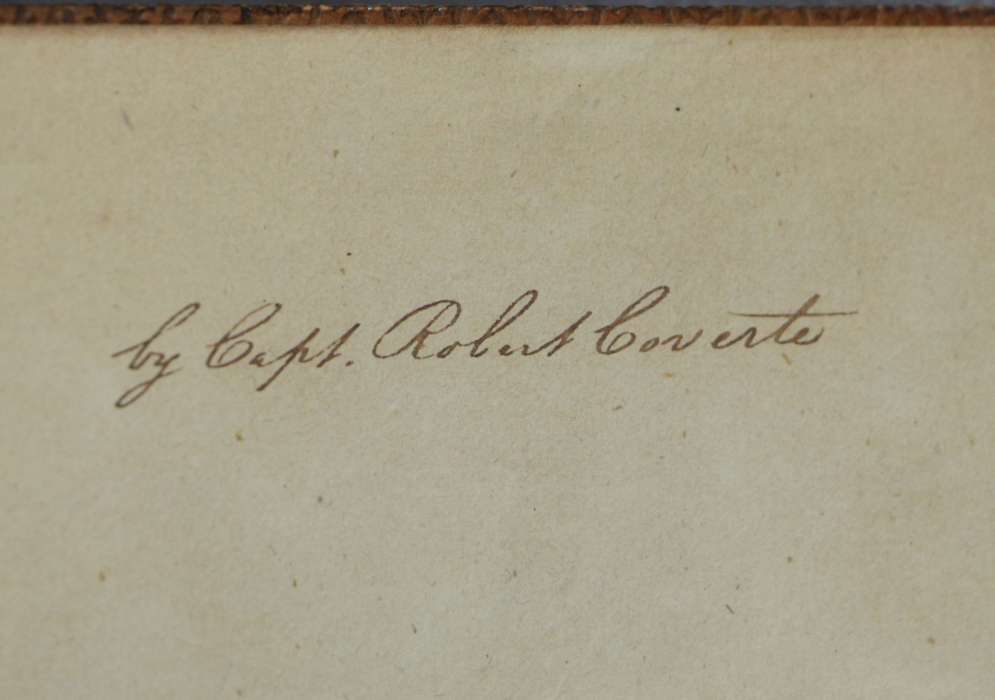 by Capt. Robert Coverte